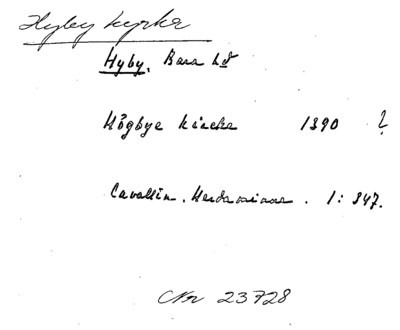 Hyby kyrka
Hyby, Bara hd
Högbye kircke 1390 ?
Cavallin, Herdaminne. 1: 347.
Nr 23728